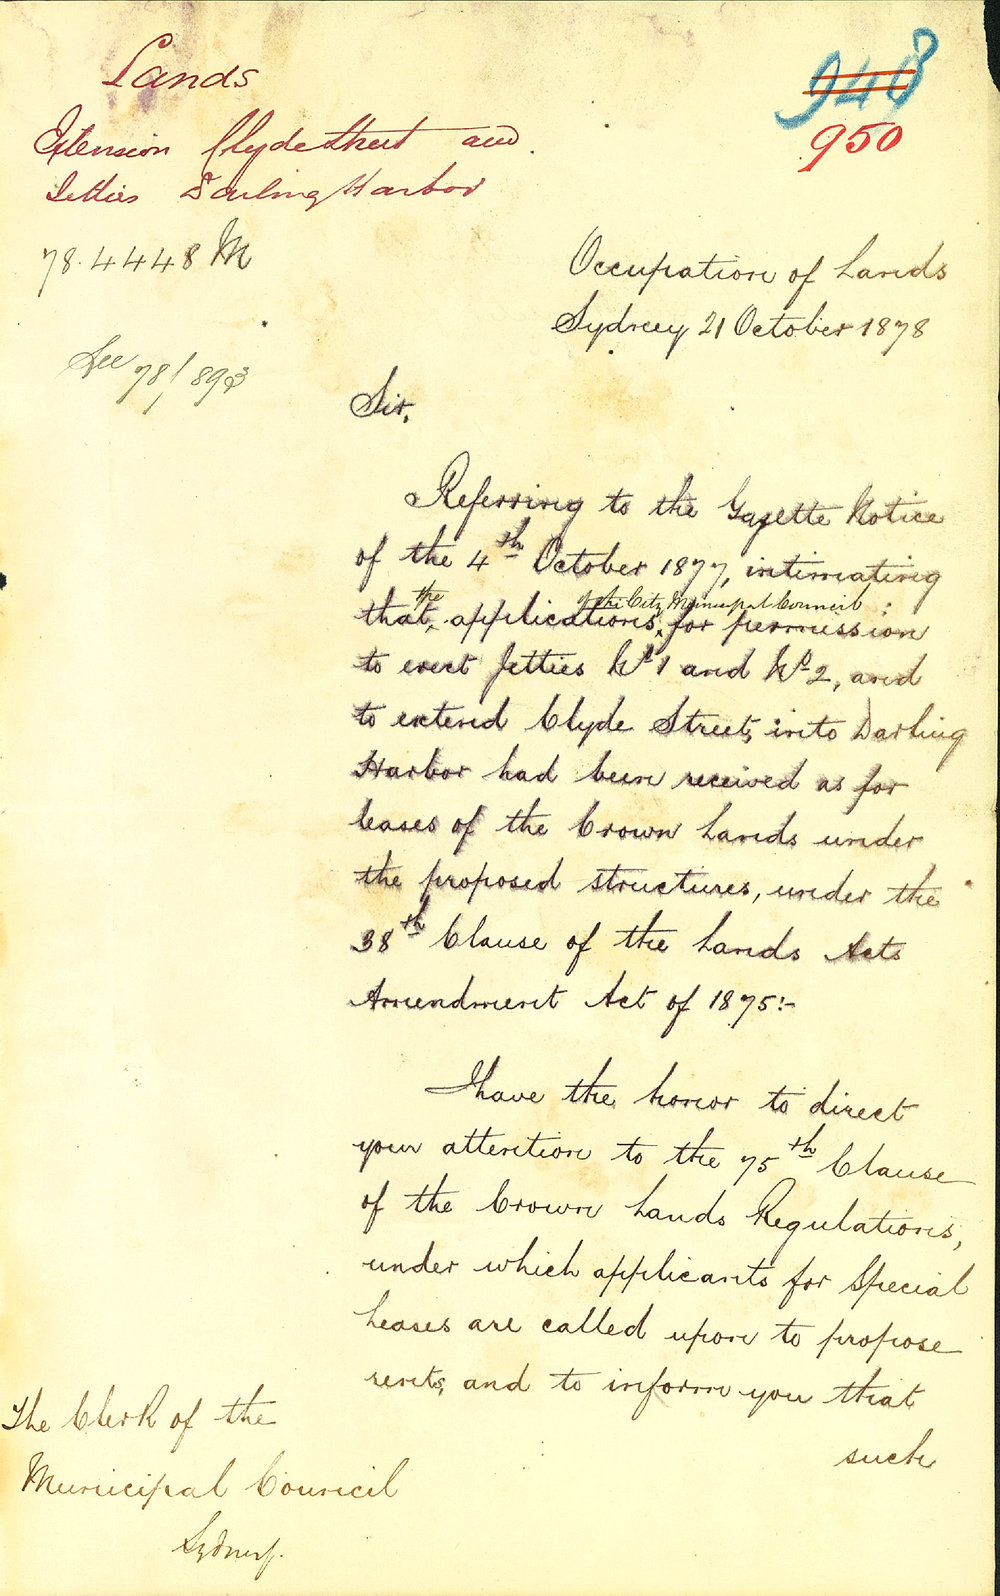 Lands
Extension Clyde Street and
Jetties Darling Harbor
78.4448 M
See 78/893
948
950
Occupation of Lands
Sydney 21 October 1878
Sir,
Referring to the Gazette Notice
of the 4th October 1877, intimating
that the applications of the City Municipal Council for permission
to erect Jetties No 1 and No 2, and
to extend Clyde Street, into Darling
Harbor had been received as for
leases of the Crown Lands under
the proposed structures, under the
38th Clause of the Lands Acts
Amendment Act of 1875:-
I have the honor to direct
your attention to the 75th Clause
of the Crown Lands Regulations,
under which applicants for Special
Leases are called upon to propose
rents, and to inform you that
such
The Clerk of the
Municipal Council
Sydney.